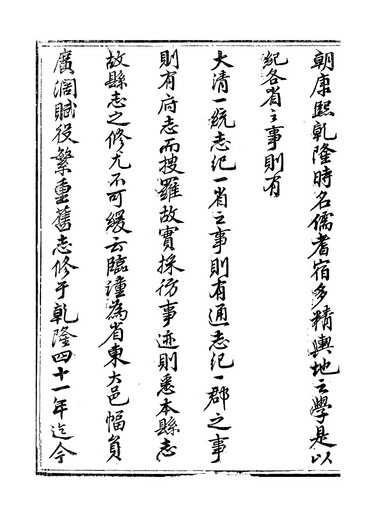 朝康熙乾隆時名儒耆宿多精輿地之學是以
紀各省之事則有
大清一統志紀一省之事則有通志紀一郡之事
則有府志而搜羅故實採訪事迹則悉本縣志
故縣志之修尤不可緩云臨潼為省東大邑幅員
廣濶賦役繁重舊志修于乾隆四十一年迄今